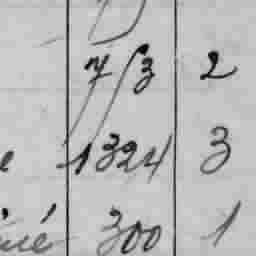 7/3 2
1324 3
300 1